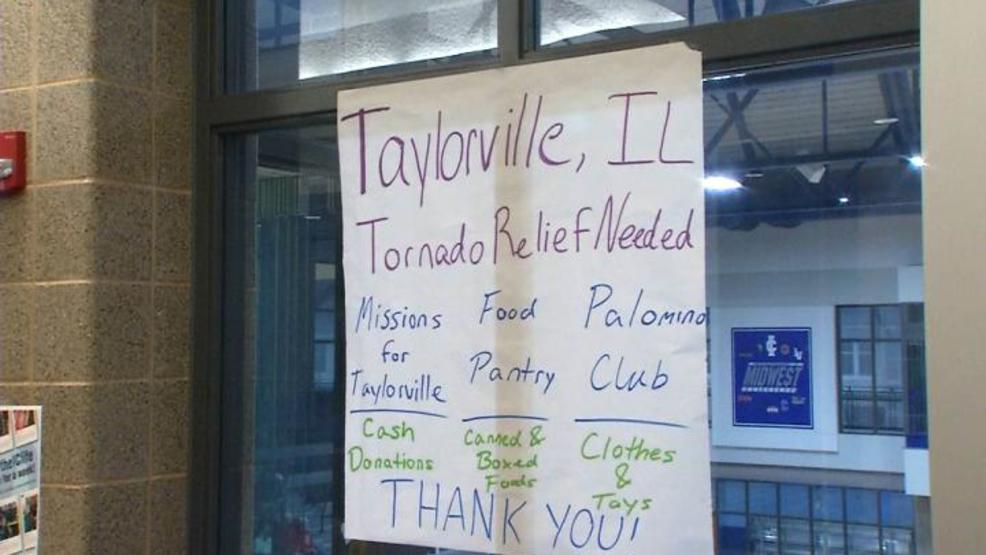 Taylorville, IL
Tornado Relief Needed
Missions for Taylorville
Cash Donations
Food Pantry
Canned & Boxed Foods
Palomino Club
Clothes & Toys
THANK YOU!
MIDWEST